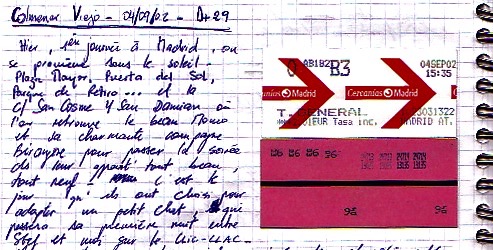 Colmenar Viejo - 04/09/02 - D+29
Hier, 1ère journée à Madrid, on
se promène sous le soleil -
Plaza Mayor, Puerta del Sol,
Parque de Retiro... et la
c/ San Cosme y San Damian où
l'on retrouve le beau Momo
et sa charmante compagne
pour passer la soirée
ds leur appart tout beau,
tout neuf - c'est le
jour qu'ils ont choisi pour
adopter un petit chat qui
passera sa première nuit entre
Stef et moi sur le clic-clac-
AB182 B3 04SEP02
15:35
Cercanías Madrid
Cercanías Madrid
T. GENERAL
Tasa inc. MADRID AT.
96 96 96 96
96 96